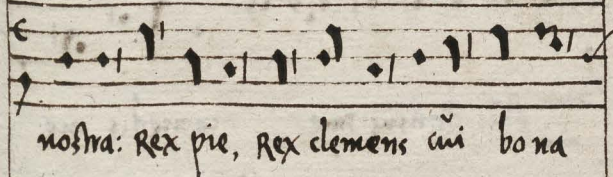 nostra: Rex pie, Rex clemens cũi bona